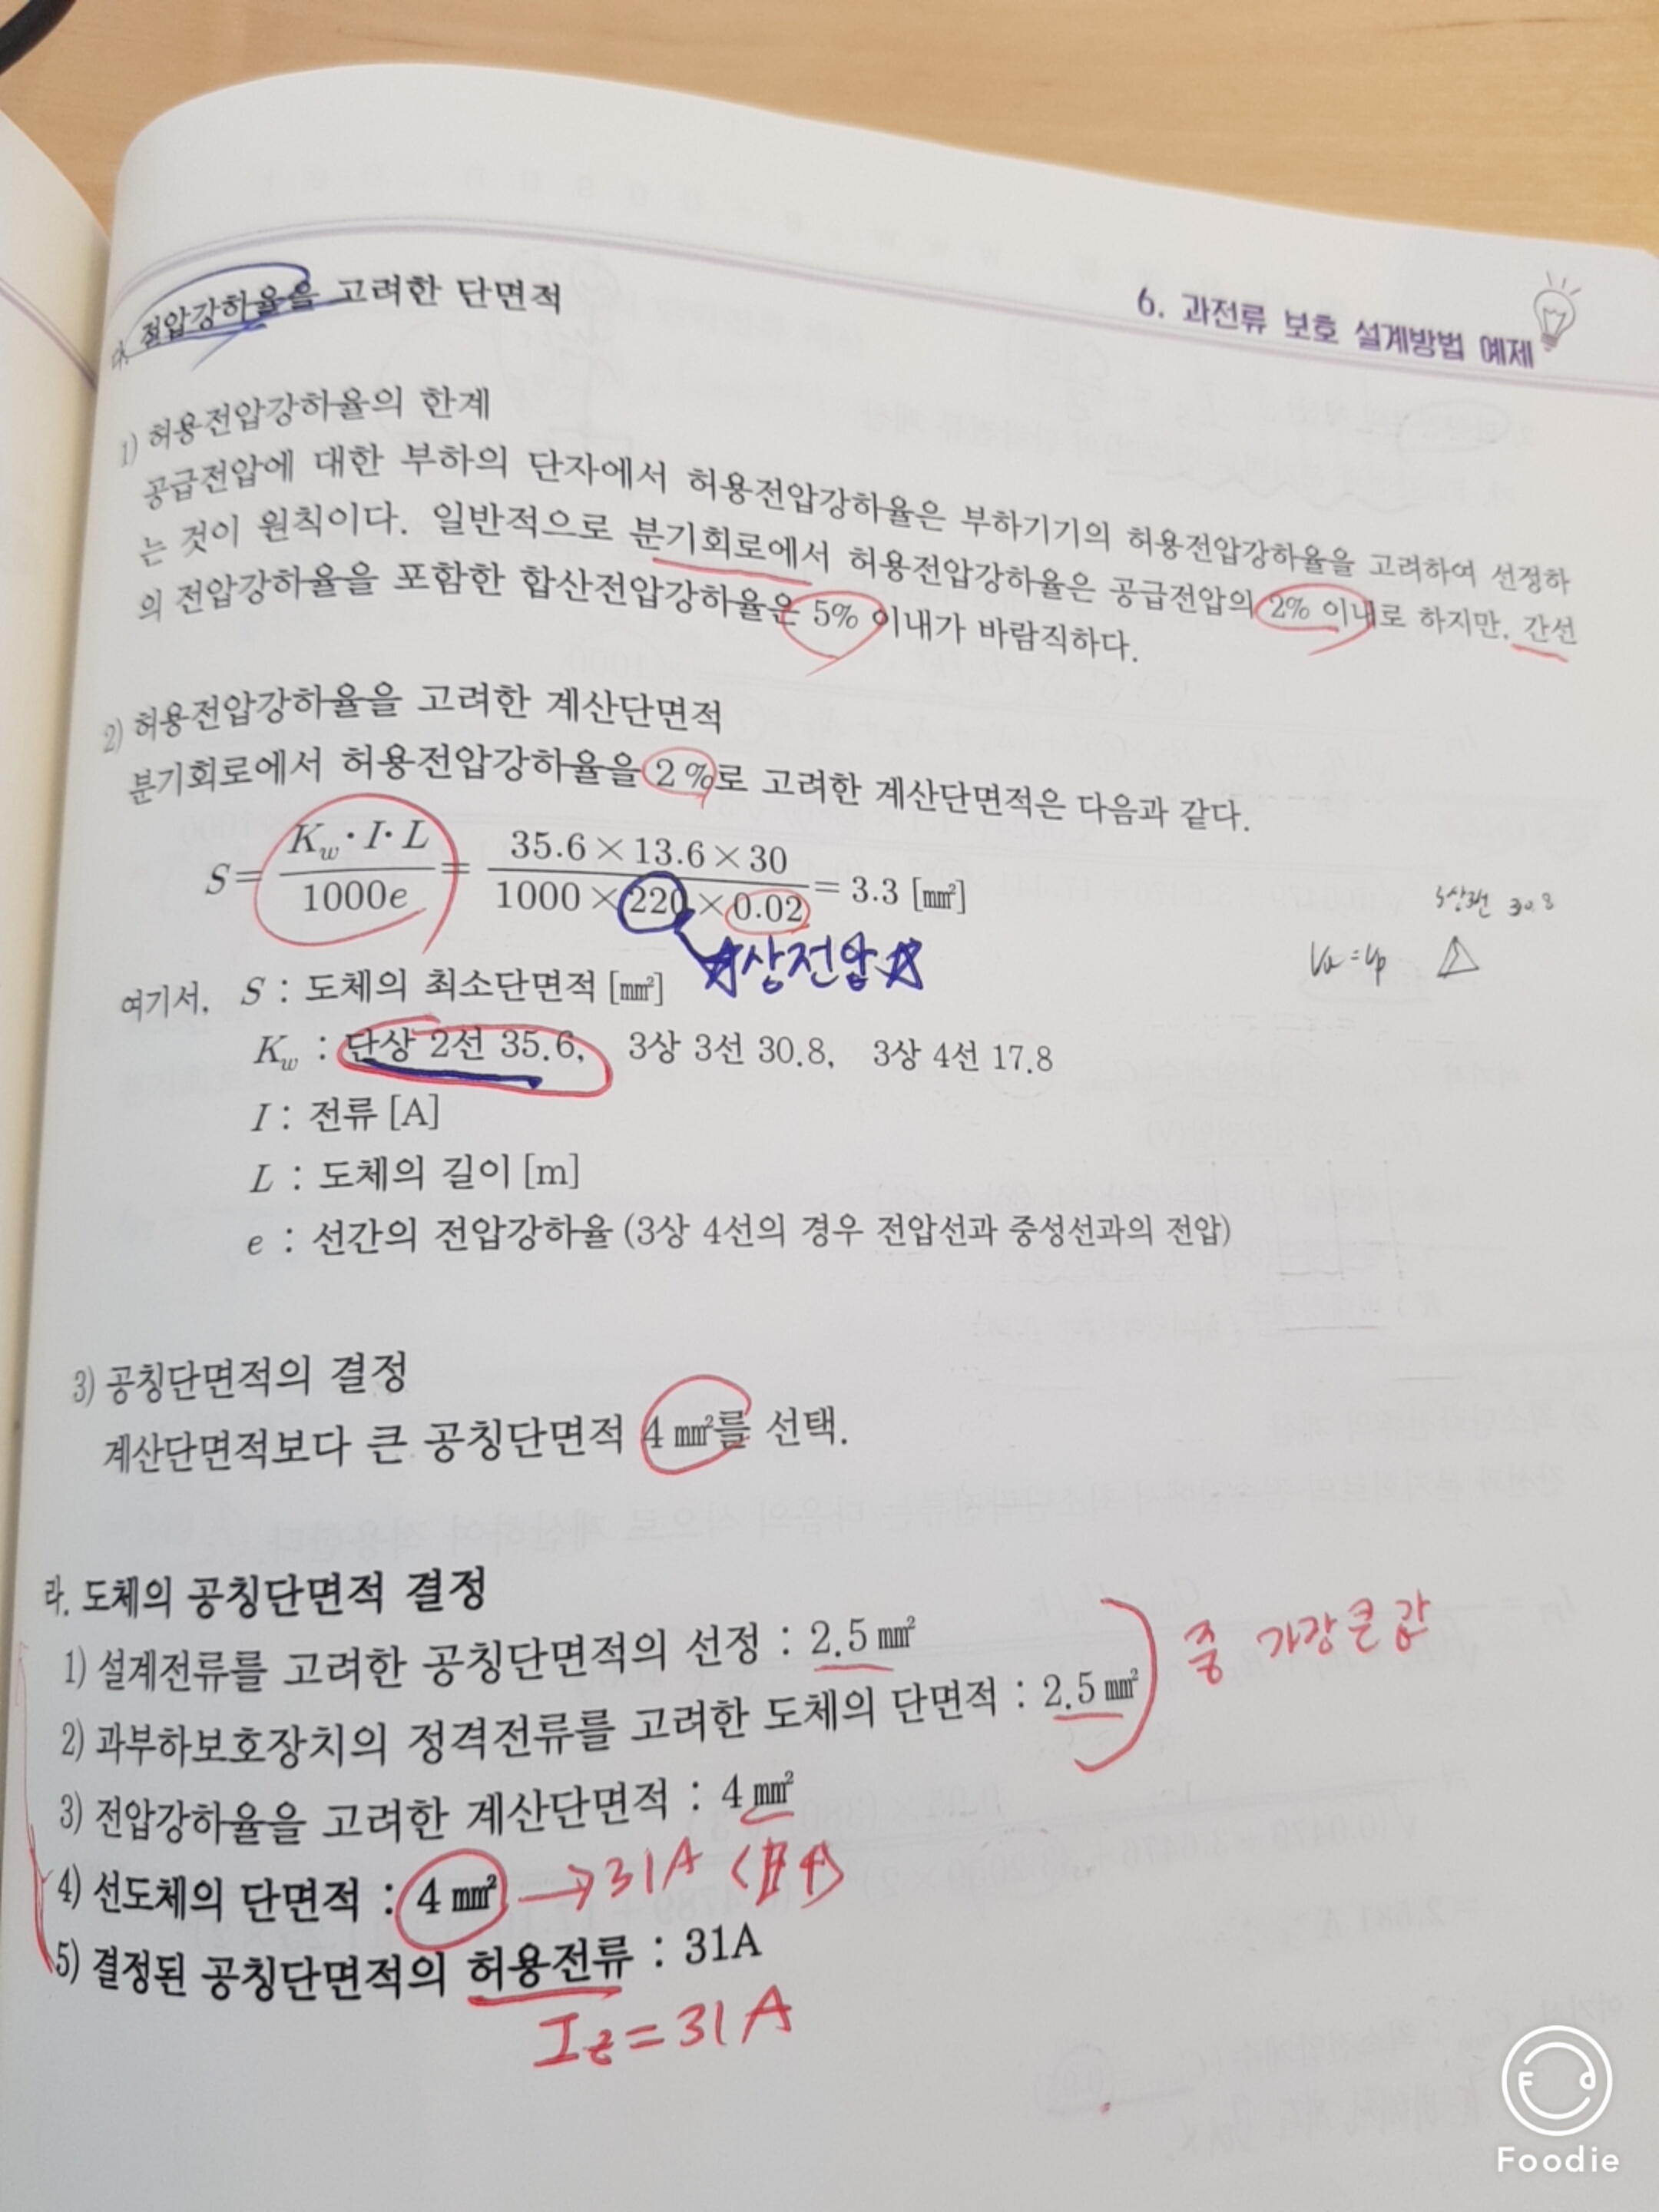 6. 과전류 보호 설계방법 예제
다. 전압강하율을 고려한 단면적
1) 허용전압강하율의 한계
공급전압에 대한 부하의 단자에서 허용전압강하율은 부하기기의 허용전압강하율을 고려하여 선정하
는 것이 원칙이다. 일반적으로 분기회로에서 허용전압강하율은 공급전압의 2% 이내로 하지만, 간선
의 전압강하율을 포함한 합산전압강하율은 5% 이내가 바람직하다.
2) 허용전압강하율을 고려한 계산단면적
분기회로에서 허용전압강하율을 2%로 고려한 계산단면적은 다음과 같다.
S = K_w · I · L / 1000e = 35.6 × 13.6 × 30 / 1000 × 220 × 0.02 = 3.3 [㎟]
☆상전압☆
3상3선 30.8
Vl = Vp △
여기서, S : 도체의 최소단면적 [㎟]
K_w : 단상 2선 35.6, 3상 3선 30.8, 3상 4선 17.8
I : 전류 [A]
L : 도체의 길이 [m]
e : 선간의 전압강하율 (3상 4선의 경우 전압선과 중성선과의 전압)
3) 공칭단면적의 결정
계산단면적보다 큰 공칭단면적 4 ㎟를 선택.
라. 도체의 공칭단면적 결정
1) 설계전류를 고려한 공칭단면적의 선정 : 2.5 ㎟
2) 과부하보호장치의 정격전류를 고려한 도체의 단면적 : 2.5 ㎟
중 가장 큰 값
3) 전압강하율을 고려한 계산단면적 : 4 ㎟
4) 선도체의 단면적 : 4 ㎟ → 31A
5) 결정된 공칭단면적의 허용전류 : 31A
Iz = 31A
Foodie